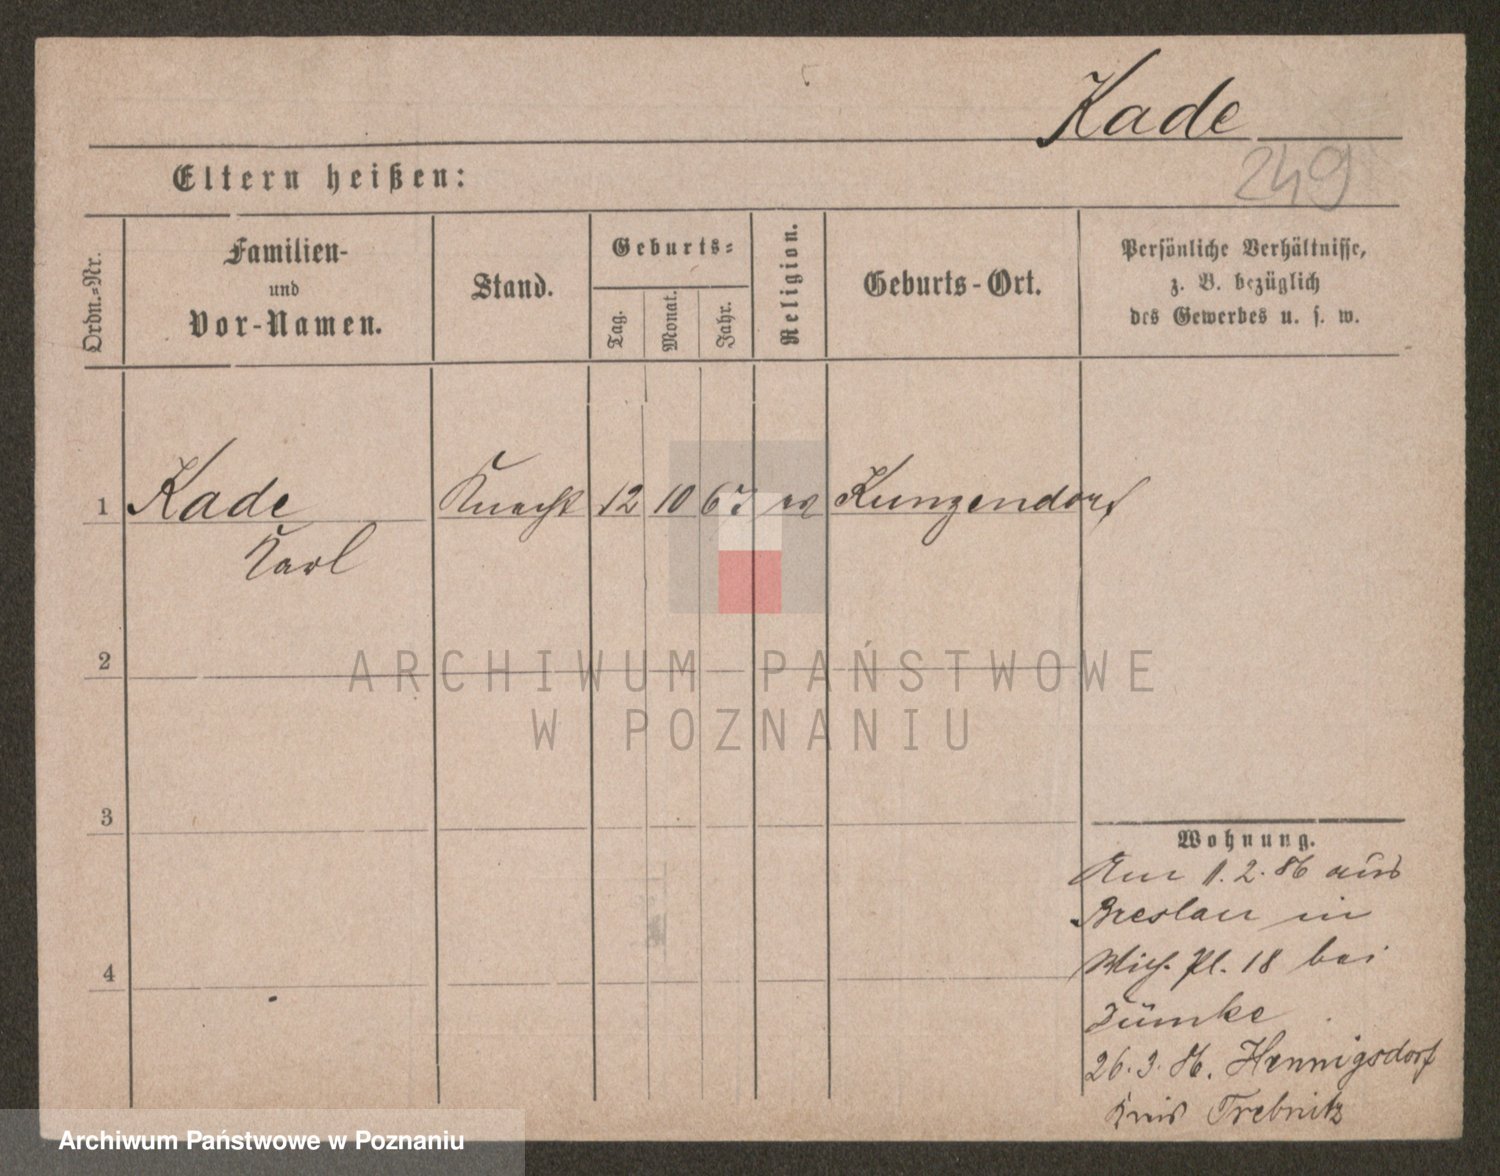 Kade
249
Eltern heißen:
Ordn.-Nr.
Familien-
und
Vor-Namen.
Stand.
Geburts-
Tag.
Monat.
Jahr.
Religion.
Geburts-Ort.
Persönliche Verhältnisse,
z. B. bezüglich
des Gewerbes u. s. w.
1 Kade Knecht 12 10 67 ev Kunzendorf
Karl
2
3
4
Wohnung.
Am 1.2.86 aus
Breslau in
Pl. 18 bei
Dümke
26.3.86. Hennigsdorf
Kreis Trebnitz
ARCHIWUM PAŃSTWOWE
W POZNANIU
Archiwum Państwowe w Poznaniu